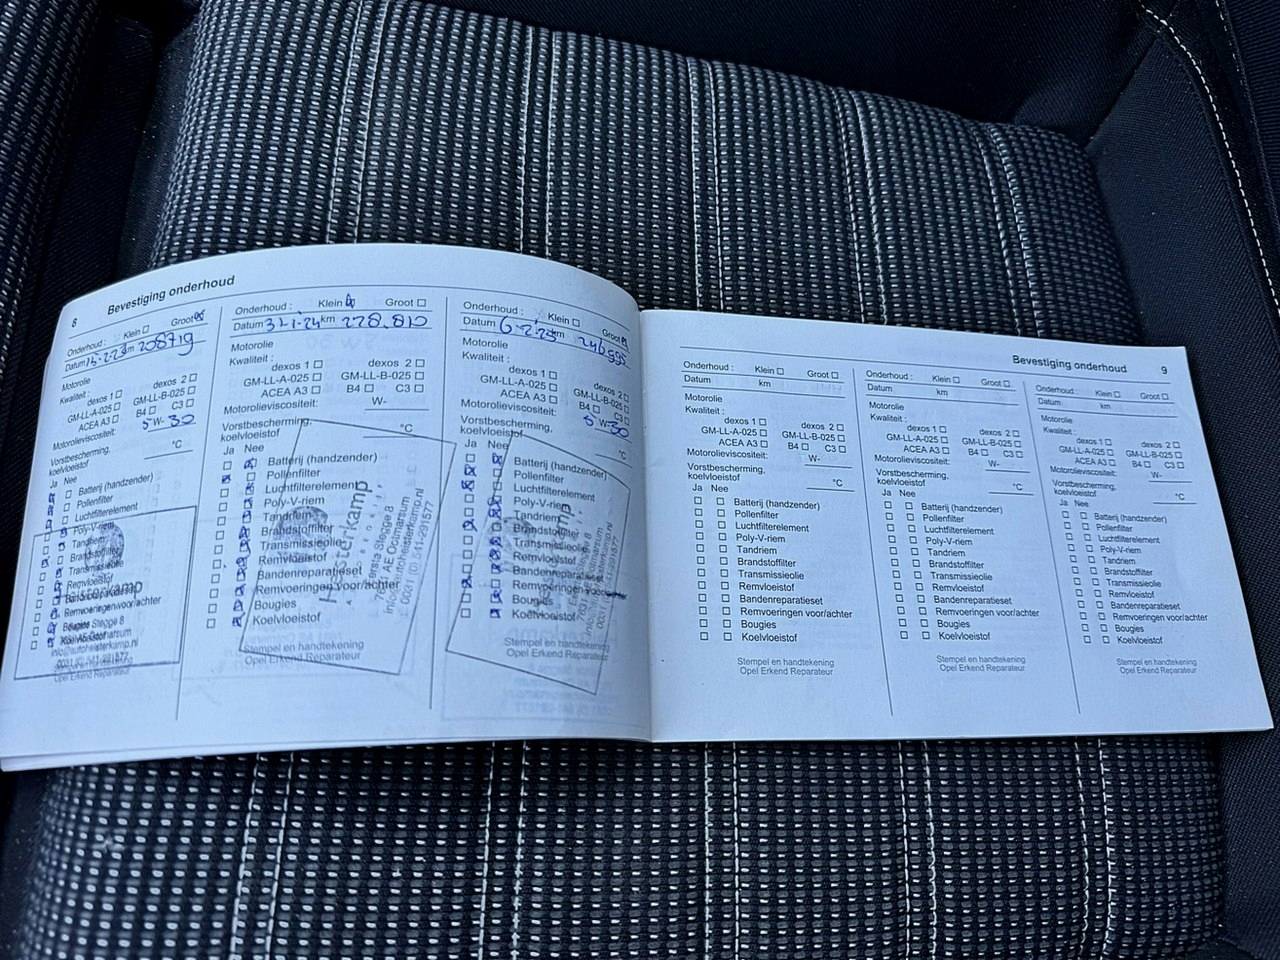 8
Bevestiging onderhoud
Onderhoud : Klein Groot
Datum 15-2-23 km 208719
Motorolie
Kwaliteit :
dexos 1 dexos 2
GM-LL-A-025 GM-LL-B-025
ACEA A3 B4 C3
Motorolieviscositeit: 5 W- 30
Vorstbescherming,
koelvloeistof °C
Ja Nee
Batterij (handzender)
Pollenfilter
Luchtfilterelement
Poly-V-riem
Tandriem
Brandstoffilter
Transmissieolie
Remvloeistof
Remvoeringen voor/achter
Bougies
Koelvloeistof
info@autoheisterkamp.nl
0031 (0) 541-291577
Stempel en handtekening
Opel Erkend Reparateur
Onderhoud : Klein Groot
Datum 31-1-24 km 228.810
Motorolie
Kwaliteit :
dexos 1 dexos 2
GM-LL-A-025 GM-LL-B-025
ACEA A3 B4 C3
Motorolieviscositeit: W-
Vorstbescherming,
koelvloeistof °C
Ja Nee
Batterij (handzender)
Pollenfilter
Luchtfilterelement
Poly-V-riem
Tandriem
Brandstoffilter
Transmissieolie
Remvloeistof
Bandenreparatieset
Remvoeringen voor/achter
Bougies
Koelvloeistof
Stempel en handtekening
Opel Erkend Reparateur
Onderhoud : Klein Groot
Datum 6-2-25 km
Motorolie
Kwaliteit :
dexos 1 dexos 2
GM-LL-A-025 GM-LL-B-025
ACEA A3 B4 C3
Motorolieviscositeit: 5 W-30
Vorstbescherming,
koelvloeistof °C
Ja Nee
Batterij (handzender)
Pollenfilter
Luchtfilterelement
Poly-V-riem
Tandriem
Brandstoffilter
Transmissieolie
Remvloeistof
Bandenreparatieset
Remvoeringen voor/achter
Bougies
Koelvloeistof
Stempel en handtekening
Opel Erkend Reparateur
Bevestiging onderhoud 9
Onderhoud : Klein Groot
Datum km
Motorolie
Kwaliteit :
dexos 1 dexos 2
GM-LL-A-025 GM-LL-B-025
ACEA A3 B4 C3
Motorolieviscositeit: W-
Vorstbescherming,
koelvloeistof °C
Ja Nee
Batterij (handzender)
Pollenfilter
Luchtfilterelement
Poly-V-riem
Tandriem
Brandstoffilter
Transmissieolie
Remvloeistof
Bandenreparatieset
Remvoeringen voor/achter
Bougies
Koelvloeistof
Stempel en handtekening
Opel Erkend Reparateur
Onderhoud : Klein Groot
Datum km
Motorolie
Kwaliteit :
dexos 1 dexos 2
GM-LL-A-025 GM-LL-B-025
ACEA A3 B4 C3
Motorolieviscositeit: W-
Vorstbescherming,
koelvloeistof °C
Ja Nee
Batterij (handzender)
Pollenfilter
Luchtfilterelement
Poly-V-riem
Tandriem
Brandstoffilter
Transmissieolie
Remvloeistof
Bandenreparatieset
Remvoeringen voor/achter
Bougies
Koelvloeistof
Stempel en handtekening
Opel Erkend Reparateur
Onderhoud : Klein Groot
Datum km
Motorolie
Kwaliteit :
dexos 1 dexos 2
GM-LL-A-025 GM-LL-B-025
ACEA A3 B4 C3
Motorolieviscositeit: W-
Vorstbescherming,
koelvloeistof °C
Ja Nee
Batterij (handzender)
Pollenfilter
Luchtfilterelement
Poly-V-riem
Tandriem
Brandstoffilter
Transmissieolie
Remvloeistof
Bandenreparatieset
Remvoeringen voor/achter
Bougies
Koelvloeistof
Stempel en handtekening
Opel Erkend Reparateur